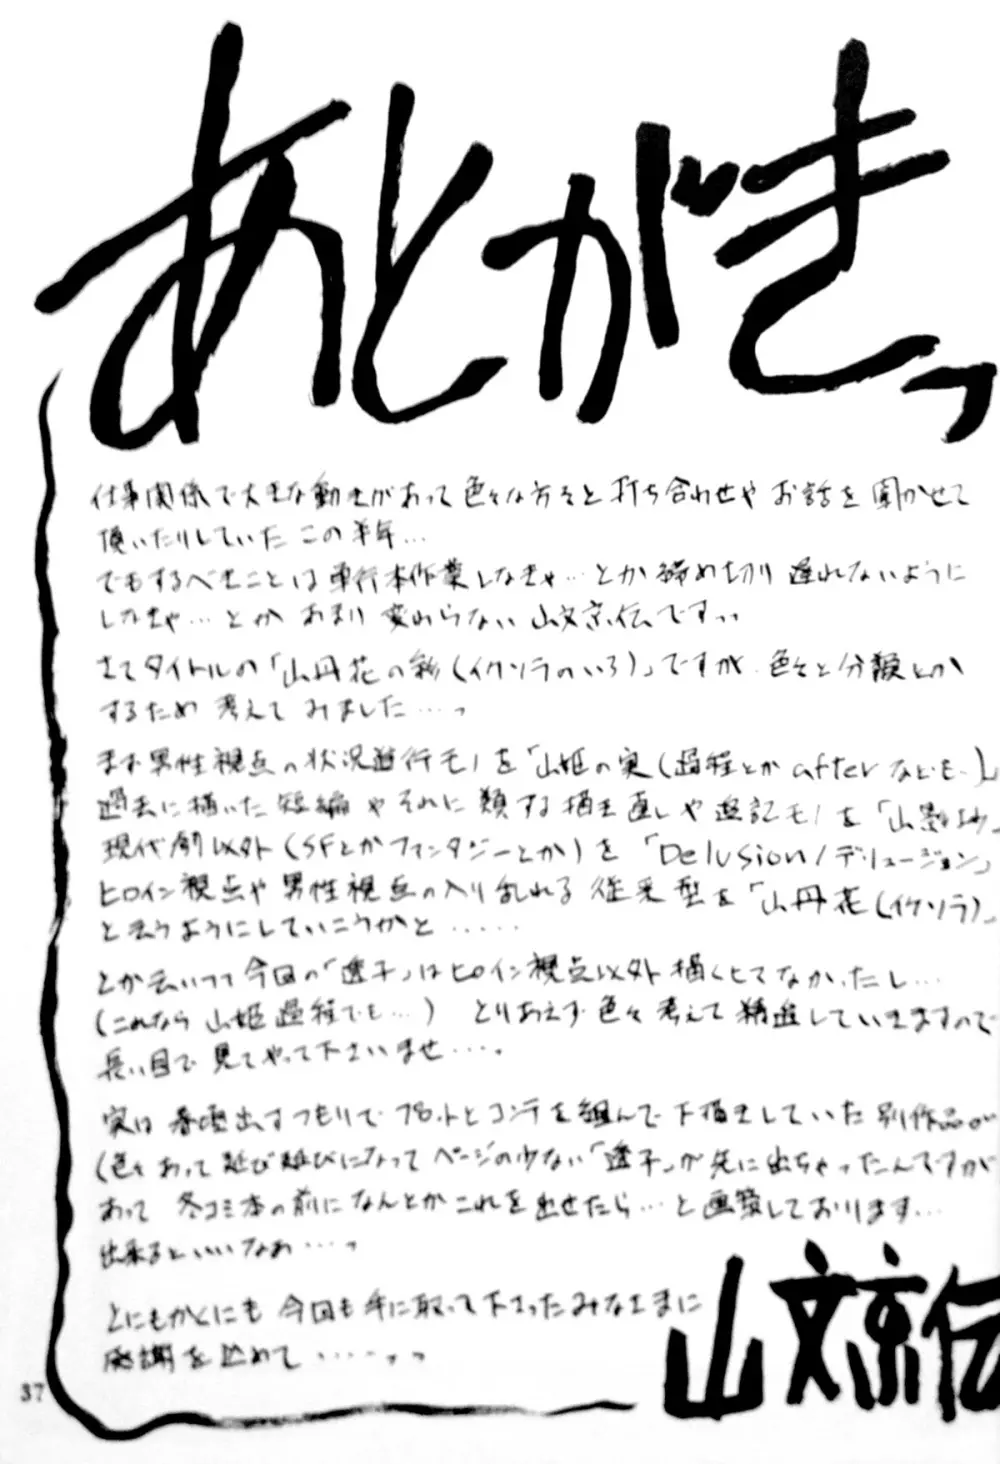 あとがきっ
仕事関係で大きな動きがあって色々な方々と打ち合わせや お話を聞かせて
頂いたりしていたこの半年…
でもするべきことは単行本作業しなきゃ…とか締め切り遅れないように
しなきゃ…とか あまり変わらない山文京伝ですっっ
さてタイトルの「山丹花の彩(イケソラのいろ)」ですが 色々と分類とか
するため考えてみました…っ
まず男性視点の状況進行モノを「山姫の実(過程とかafterなども)」
過去に描いた短編やそれに類する描き直しや追記モノを「山
現代劇以外(SFとかファンタジーとか)を「Delusion/デリュージョン」
ヒロイン視点や男性視点の入り乱れる従来型を「山丹花(イケソラ)」
と云うようにしていこうかと……
とか云いつつ今回の「透子」はヒロイン視点以外描くヒマなかったし…
(これなら山姫過程でも…) とりあえず色々考えて精進していきますので
長い目で見てやって下さいませ….
実は春頃出すつもりでプロットとコンテを組んで下描きしていた別作品が
(色々あって延び延びになってページの少ない「透子」が先に出ちゃったんですが
あって 冬コミ本の前になんとかこれを出せたら…と画策しております…
出来るといいなぁ…っ
とにもかくにも 今回も手に取って下さったみなさまに
感謝を込めて……っっ
山文京伝
37